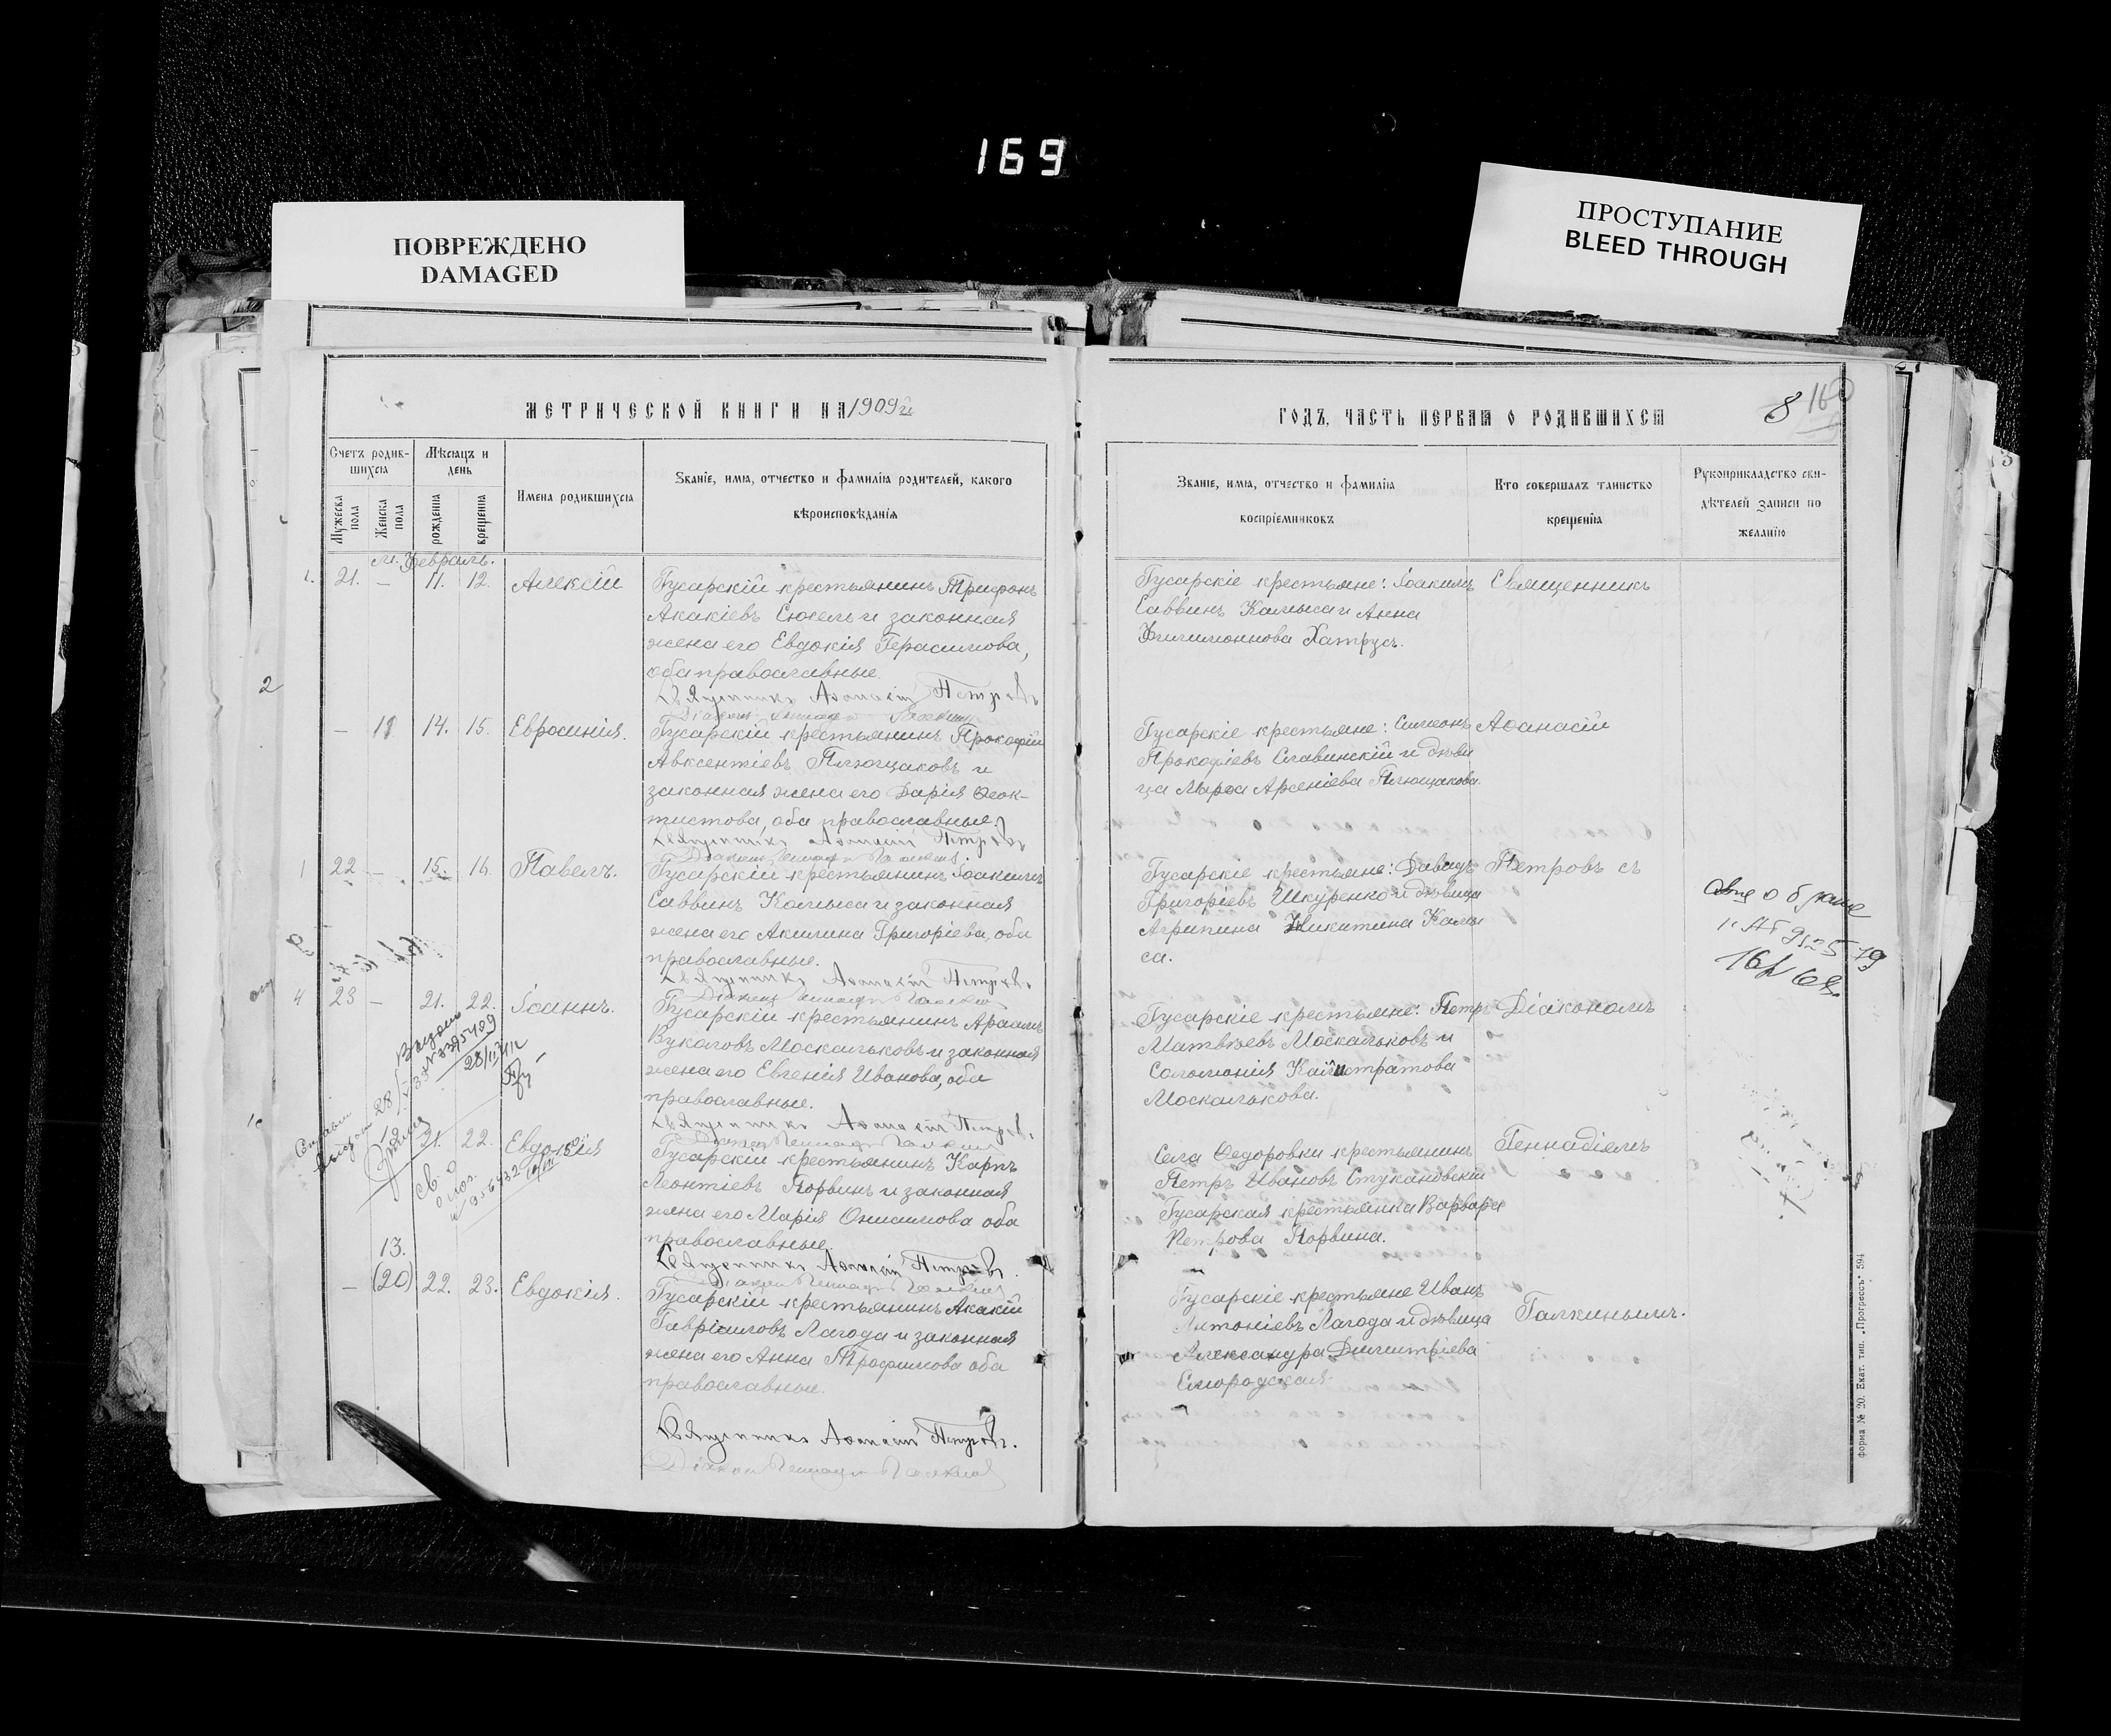 169
ПОВРЕЖДЕНО
DAMAGED
ПРОСТУПАНИЕ
BLEED THROUGH
МЕТРИЧЕСКОЙ КНИГИ НА 1909й
ГОДЪ, ЧАСТЬ ПЕРВАЯ О РОДИВШИХСЯ
8 160
Счетъ родив-
шихся
Мужеска пола
Женска пола
Мѣсяцъ и
день
рожденія
крещенія
Имена родившихся
Званіе, имя, отчество и фамилія родителей, какого
вѣроисповѣданія
Званіе, имя, отчество и фамилія
воспріемниковъ
Кто совершалъ таинство
крещенія
Рукоприкладство сви-
дѣтелей записи по
желанію
м. Февраль.
21. — 11. 12. Алексій
Гусарскій крестьянинъ Трифонъ
Акакіевъ Сюсель и законная
жена его Евдокія Герасимова,
оба православные.
Священникъ Аѳанасій Петровъ
Гусарскіе крестьяне: Іоакимъ
Саввинъ Камыса и Анна
Филимонова Хатрусъ.
Священникъ
2
— 11 14. 15. Евросинія.
Гусарскій крестьянинъ Прокофій
Авксентіевъ Плющаковъ и
законная жена его Дарія Ѳеок-
тистова, оба православные.
Священникъ Аѳанасій Петровъ
Гусарскіе крестьяне: Симеонъ
Прокофіевъ Славинскій и дѣви
ца Марѳа Арсеніева Плющакова.
Аѳанасій
1 22 — 15. 16. Павелъ.
Гусарскій крестьянинъ Іоакимъ
Саввинъ Камыса и законная
жена его Акилина Григоріева, оба
православные.
Священникъ Аѳанасій Петровъ
Гусарскіе крестьяне: Давидъ
Григоріевъ Шкуренко и дѣвица
Агрипина Никитина Камы
са.
Петровъ съ
4 23 — 21. 22. Іоаннъ.
Гусарскій крестьянинъ Авраамъ
Вуколовъ Москальковъ и законная
жена его Евгенія Иванова, оба
православные.
Священникъ Аѳанасій Петровъ
Гусарскіе крестьяне: Петръ
Матвѣевъ Москальковъ и
Соломонія Каистратова
Москалькова.
Діакономъ
28/II
21. 22. Евдокія
Гусарскій крестьянинъ Карпъ
Леонтіевъ Порвинъ и законная
жена его Марія Онисимова оба
православные
Священникъ Аѳанасій Петровъ.
Села Ѳедоровки крестьянинъ
Петръ Ивановъ Стукановскій
Гусарская крестьянка Варвара
Петрова Порвина.
Геннадіемъ
13.
— (20) 22. 23. Евдокія.
Гусарскій крестьянинъ Акакій
Гавріиловъ Лагода и законная
жена его Анна Трофимова оба
православные.
Священникъ Аѳанасій Петровъ.
Діаконъ Геннадій Галкинъ
Гусарскіе крестьяне Иванъ
Антоніевъ Лагода и дѣвица
Александра Димитріева
Смородская
Галкинымъ.
Форма № 20. Екат. тип. „Прогрессъ" 594